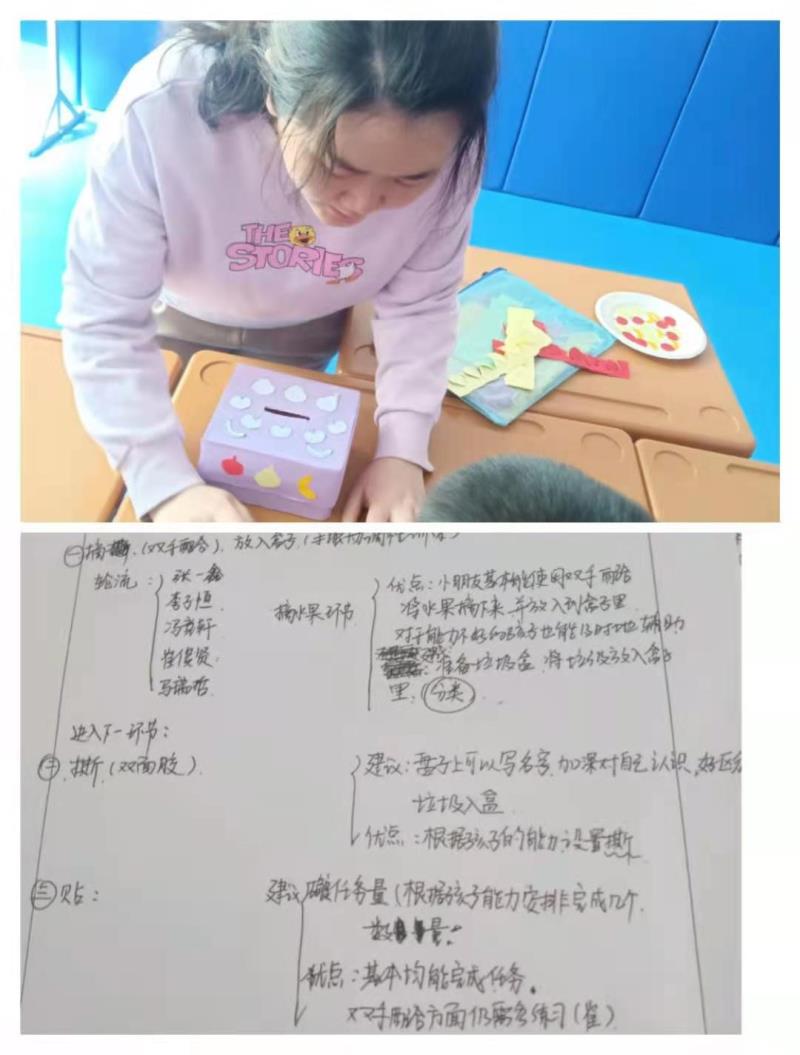 THE
STORIES
㊀摘 (双手配合), 放入盒子
轮流: 张一鑫
李子恒
冯奕轩
崔俊贤
马瑞哲
摘水果环节
优点: 小朋友基本能使用双手配合
将水果摘下来, 并放入到盒子里
对于能力不好的孩子也能及时地辅助
准备垃圾盒, 将垃圾放入盒子
里. 分类
进入下一环节:
㊁. 撕 (双面胶)
建议: 盘子上可以写名字, 加深对自己认识, 好区分
垃圾入盒
优点: 根据孩子的能力设置撕
㊂贴:
建议 任务量 (根据孩子能力安排完成几个.
数量.
优点: 基本均能完成任务.
双手配合方面仍需多练习 (崔)